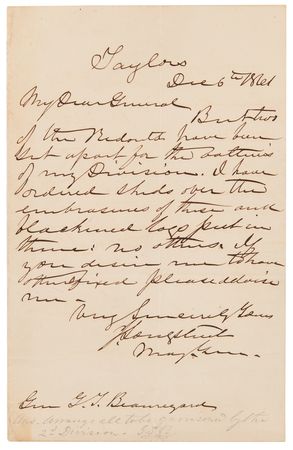 Taylors
Dec 6th 1861
My Dear General
But two
of the Redouts have been
set apart for the batteries
of my Division. I have
ordered sheds over the
embrasures of these and
blackened logs put in
there: no others. If
you desire me to have
others fixed please advise
me.
Very Sincerely Yours
J Longstreet
Maj. Gen.
Gen G. T. Beauregard
Ans. arrange all to be garrisoned by the
2d Division